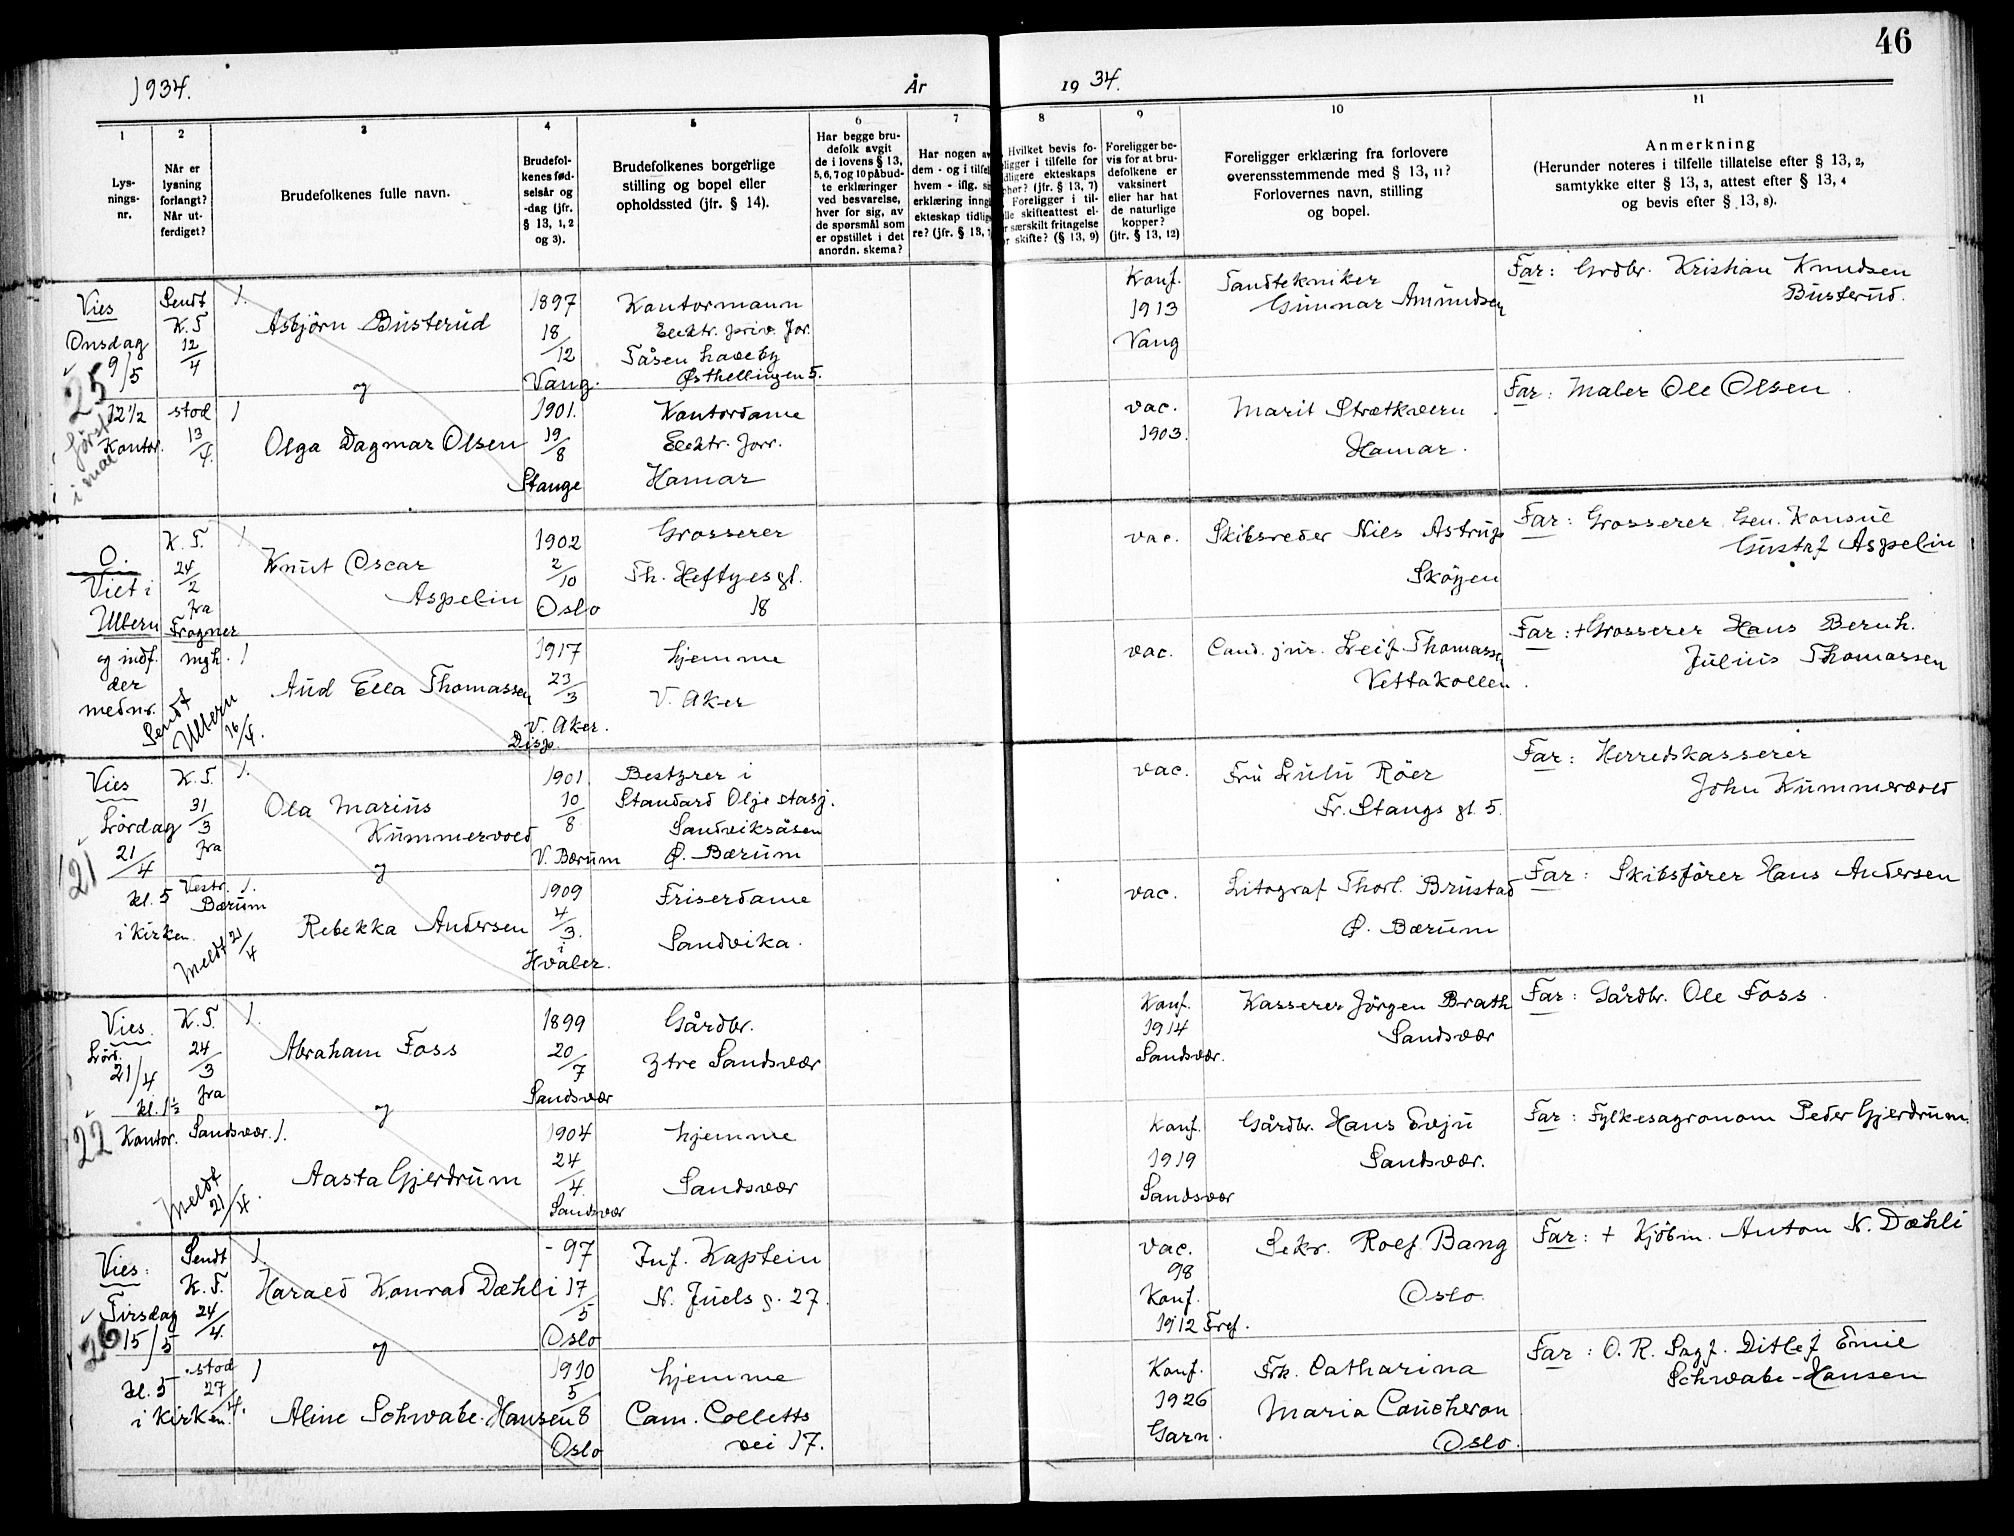 46
1934.
År
19 34.
1
2
3
4
5
6
7
8
9
10
11
Lys-
nings-
nr.
Når er
lysning
forlangt?
Når ut-
ferdiget?
Brudefolkenes fulle navn.
Brudefol-
kenes fød-
selsår og
-dag (jfr.
§ 13, 1, 2
og 3).
Brudefolkenes borgerlige
stilling og bopel eller
opholdssted (jfr. § 14).
Har begge bru-
defolk avgit
de i lovens § 13,
5, 6, 7 og 10 påbud-
te erklæringer
ved besvarelse,
hver for sig, av
de spørsmål som
er opstillet i det
anordn. skema?
Har nogen av
dem - og i tilfel
hvem - iflg. si
erklæring inng
ekteskap tidlig
re? (jfr. § 13,
Hvilket bevis fo-
religger i tilfelle for
tidligere ekteskaps
ophør? (jfr. § 13, 7)
Foreligger i til-
felle skifteattest el-
særskilt fritagelse
for skifte? (§ 13, 9)
Foreligger be-
vis for at bru-
defolkene er
vaksinert
eller har hat
de naturlige
kopper?
(jfr. § 13, 12)
Foreligger erklæring fra forlovere
overensstemmende med § 13, 11?
Forlovernes navn, stilling
og bopel.
Anmerkning
(Herunder noteres i tilfelle tillatelse efter § 13, 2,
samtykke efter § 13, 3, attest efter § 13, 4
og bevis efter § 13, 8).
Vies
Onsdag
9/5
25
12½
Kontor.
først
i mai
Sendt
K.T
12/4
stod
13/4.
1.
Asbjörn Busterud
og
1897
18/12
Vang.
Kontormann
Elektr. priv. for.
Tåsen haveby
Østhellingen 5.
Konf.
1913
Vang
Tandtekniker
Gunnar Amundsen
Far: Grdbr. Kristian Knudsen
Busterud.
1
Olga Dagmar Olsen
1901.
19/8
Stange
Kontordame
Elektr. forr.
Hamar
vac.
1903.
Marit Strætkvern
Hamar.
Far: Maler Ole Olsen.
O.
Viet i
Ullern
og indf.
der
mednr.
K.T.
24/2
fra
Frogner
mgh.
Sendt
Ullern
16/4.
1.
Knut Oscar
Aspelin
1902
2/10
Oslo
Grosserer
Th. Heftyesgt.
18
vac.
Skibsreder Nils Astrup
Skøyen
Far: Grosserer Gen. Konsul
Gustaf Aspelin
1
Aud Ella Thomassen
1917
23/3
V. Aker.
Disp.
hjemme
V. Aker
vac.
Cand. jur. Leif Thomassen
Vettakollen.
Far: + Grosserer Hans Bernh.
Julius Thomassen
Vies
Lördag
21/4
21
kl. 5
i kirken
K.T.
31/3
fra
Vestr.
Bærum
Meldt 21/4
1.
Ola Marius
Kummervold
og
1901
10/8
V. Bærum
Bestyrer i
Standard Olje stasj.
Sandviksåsen
Ø. Bærum
vac.
Fru Lulu Röer
Fr. Stangs gt. 5.
Far: Herredskasserer
John Kummervold
1.
Rebekka Andersen
1909
4/3.
i
Hvaler.
Friserdame
Sandvika.
vac.
Litograf Thorl. Brustad
Ø. Bærum
Far: Skibsfører Hans Andersen
Vies.
Lörd.
21/4
kl. 1½
22
Kontor.
K.T.
24/3
fra
Sandsvær.
Meldt
21/4.
1.
Abraham Foss
og
1899
20/7
Sandsvær
Gårdbr.
ytre Sandsvær
Konf.
1914
Sandsvær.
Kasserer Jörgen Brath
Sandsvær
Far: Gårdbr. Ole Foss.
1.
Aasta Gjerdrum
1904
24/4.
Sandsvær
hjemme
Sandsvær
Konf.
1919
Sandsvær
Gårdbr. Hans Evju
Sandsvær.
Far: Fylkesagronom Peder Gjerdrum.
Vies:
Tirsdag
15/5
26
kl. 5
i kirken
Sendt
K.T.
24/4.
stod
27/4.
1.
Harald Konrad Dæhli
og
-97
17/5
Oslo
Inf. Kaptein
N. Juels g. 27.
vac.
98
Konf.
1912 Fref.
Sekr. Rolf Bang
Oslo.
Far: + Kjöbm. Anton N. Dæhli
1
Aline Schwabe-Hansen
1910
5/8
Oslo
hjemme
Cam. Colletts
vei 17.
Konf.
1926
Garn.
Frk. Catharina
Maria Caucheron
Oslo.
Far: O. R. Sagf. Ditlef Emil
Schwabe-Hansen